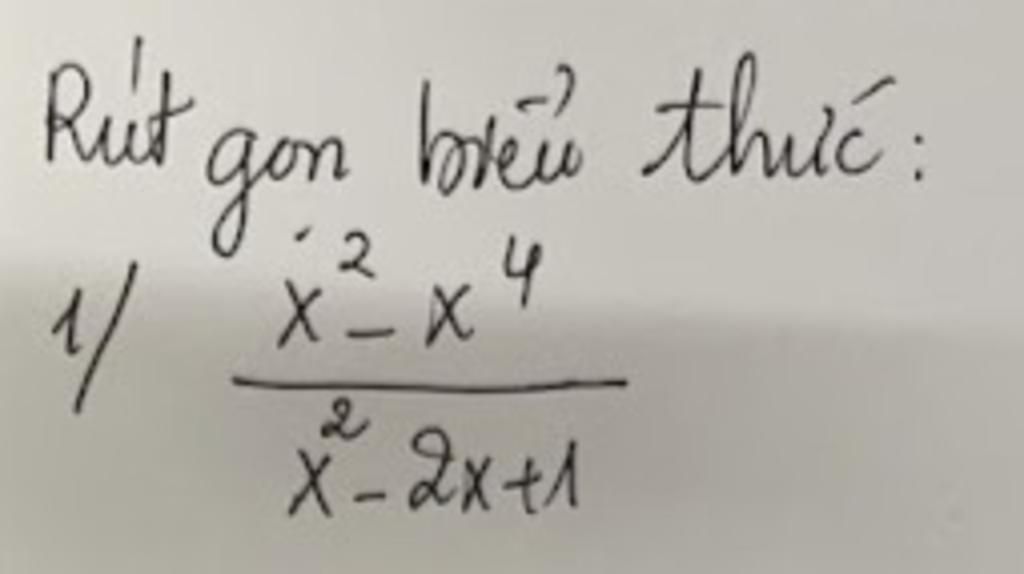 Rút gọn biểu thức:
1/ x² - x⁴
x² - 2x + 1